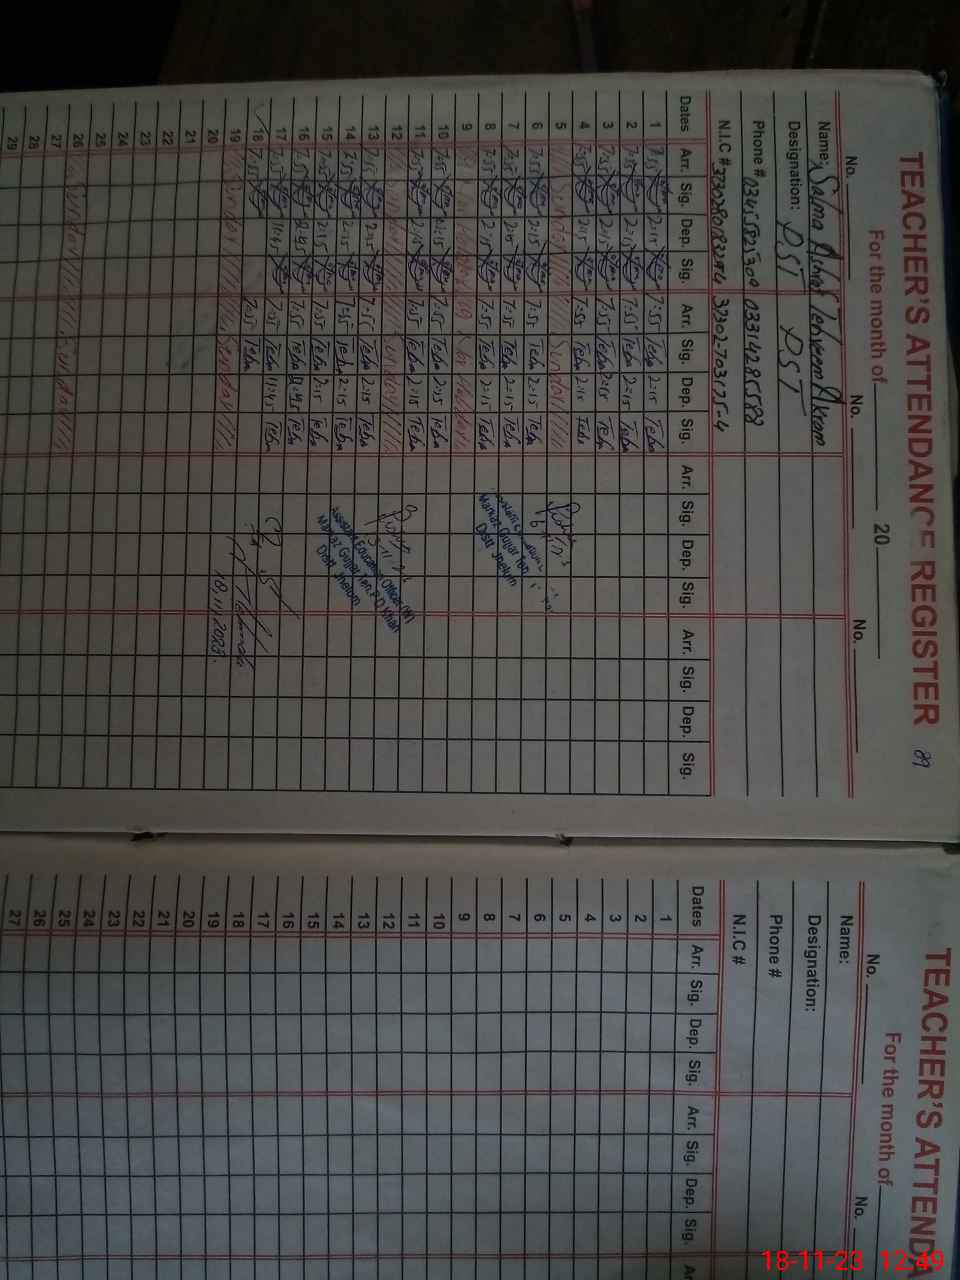 TEACHER'S ATTENDANCE REGISTER 89
For the month of 20
No. No. No.
Name: Salma Ashraf Tehreem Akram
Designation: PST PST
Phone # 03455825300 03314285588
N.I.C # 37302-703175-4
Dates Arr. Sig. Dep. Sig. Arr. Sig. Dep. Sig. Arr. Sig. Dep. Sig. Arr. Sig. Dep. Sig.
1 7:55 2:15 7:55 Tehn 2:15 Tehn
2 7:55 2:15 7:55 Tehn 2:15 Tehn
3 7:55 2:15 7:55 Tehn 2:15 Tehn
4 7:55 2:15 7:55 Tehn 2:15 Tehn
5 Sunday Sunday
6 7:55 2:15 7:55 Tehn 2:15 Tehn
7 7:55 2:15 7:55 Tehn 2:15 Tehn
8 7:55 2:15 7:55 Tehn 2:15 Tehn
9
10 7:55 2:15 7:55 Tehn 2:15 Tehn
11 7:55 2:15 7:55 Tehn 2:15 Tehn
12 Sunday Sunday
13 7:55 2:15 7:55 Tehn 2:15 Tehn
14 7:55 2:15 7:55 Tehn 2:15 Tehn
15 7:55 2:15 7:55 Tehn 2:15 Tehn
16 7:55 2:45 7:55 Tehn Tehn
17 7:55 11:45 7:55 Tehn 11:45 Tehn
18 7:55 7:55 Tehn
19 Sunday Sunday
20
21
22
23
24
25
26 Sunday Sunday
27
28
29
Markaz Gujjar
Distt Jhelum
Assistant Education Officer (W)
Markaz Gujjar Teh. P.D Khan
Distt Jhelum
18,11,2023.
TEACHER'S ATTEND
For the month of
No. No.
Name:
Designation:
Phone #
N.I.C #
Dates Arr. Sig. Dep. Sig. Arr. Sig. Dep. Sig. Ar
1
2
3
4
5
6
7
8
9
10
11
12
13
14
15
16
17
18
19
20
21
22
23
24
25
26
27
18-11-23 12:49